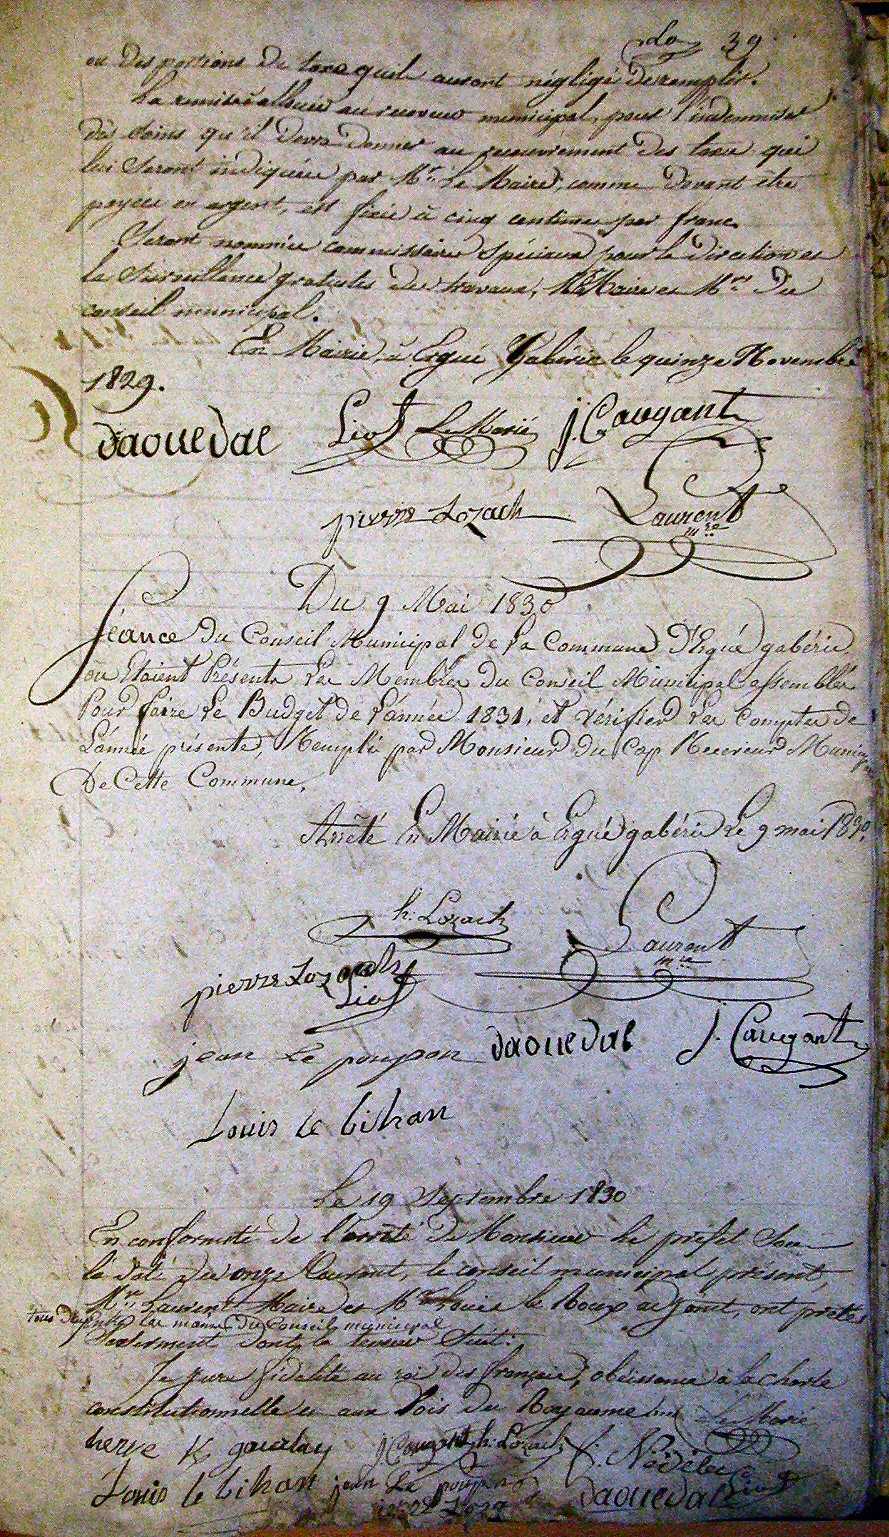 39
ou des portions de taxe qu'ils auront négligé de remplir.
La remise allouée au receveur municipal, pour l'indemniser
des soins qu'il devra donner au recouvrement des taxes qui
lui seront indiquées par Mr. Le Maire, comme devant être
payées en argent, est fixée à cinq centimes par franc.
Seront nommés commissaires spéciaux pour la direction et
la surveillance gratuites des travaux, Mr Maire et Mrs du
conseil municipal.
En Mairie, à Ergué Gabéric le quinze Novembre
1829.
Daouedal Liot Le Marié j Caugant
pierre Lozach Laurent
mre
Du 9 Mai 1830
Séance du Conseil Municipal de La Commune D'Ergué gabéric
ou Etaient Présents Les Membres du Conseil Municipal assemblés
Pour faire Le Budget de L'année 1831, et vérifier Les Comptes de
L'année présente, Remplis par Monsieur du Cap Receveur Municip
De Cette Commune,
Arrêté En Mairie à Ergué gabéric Le 9 mai 1830.
h. Lozach Laurent
mre
pierre Lozach
Liot
jean Le poupon Daouedal J. Caugant
Louis le bihan
Le 19 Septembre 1830
En conformité de l'arrêté de Monsieur Le préfet Sous
la date du onze Courant, le conseil municipal présent,
Mr. Laurent Maire et Mr Louis le Roux adjoint, ont prêtés
tous du conseil municipal
Serment dont la teneur Suit:
Je jure fidélité au roi des français, obéissance à la charte
constitutionnelle et aux Lois du Royaume Le Marié
herve gourlay J Caugant h. Lozach Nédélec
Louis le bihan jean Le poupon Daouedal Liot